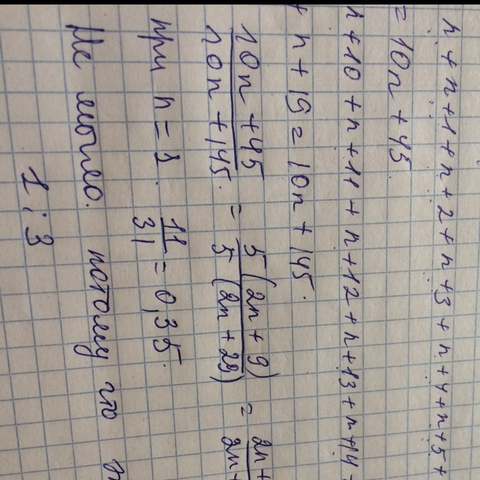 n + n+1 + n+2 + n+3 + n+4 + n+5 +
= 10n + 45
n+10 + n+11 + n+12 + n+13 + n+14 +
+ n + 19 = 10n + 145.
10n + 45 / 10n + 145 = 5(2n + 9) / 5(2n + 29) = 2n + / 2n +
при n = 1. 11/31 = 0,35.
Не может. потому что
1 : 3